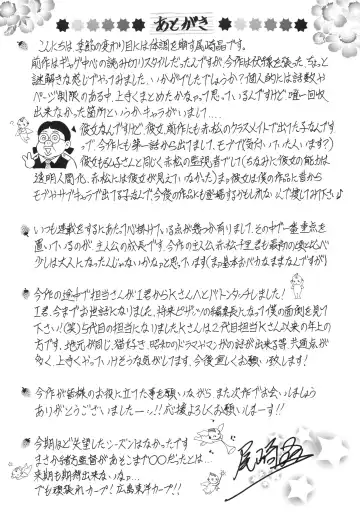 あとがき
こんにちは 季節の変わり目には体調を崩す尾崎晶です。
前作はギャグ中心の読み切りスタイルだったんですが、今作は伏線を張ったちょっと
謎解きな感じでやってみました、いかがでしたでしょうか?個人的には話数や
ページ制限のある中、上手くまとめたかなって思っているんですけど唯一回収
出来なかった箇所というかキャラがいまして…
彼女なんですけど、彼女、前作にも赤松のクラスメイトで出てた子なんですっ
で、今作にも第一話から出てまして、モブで気付いていた人います?)
彼女もムチさんと同じく赤松の監視者でして(ちなみに彼女の能力は
透明人間化、赤松には彼女が見えていなかった)まぁ彼女は僕の作品に昔から
モブやサブキャラで出てる子なんで、今後の作品にも登場するかもしれないんで探してみて下さい♪
いつも連載をするにあたって心掛けている点が幾つか有りまして、その中で一番重点を
置いているのが、主人公の成長です。今作の主人公赤松千里君も最初の頃と比べ
少しは大人になったんじゃないかなっと思っています(まぁ基本おバカなままなんですが)
今作の途中で担当さんがI君からKさんへとバトンタッチしました!
I君、今までお世話になりました、将来ビギンの編集長になって僕の面倒を見て
下さい!(笑)5代目の担当になりましたKさんは2代目担当Kさん以来の年上の
方です。地元が同じ、猫好き、昭和のドラマやマンガの話が出来る等、共通点が
多く、上手くやっていけそうな気がしてます、今後宜しくお願い致します!
今作が皆様のお役に立てた事を願いながら、また次作でお会いしましょう
ありがとうございましたーっ!!応援よろしくお願いしまーす!!
今期ほど失望したシーズンはなかったです
まさか緒方監督があそこまで〇〇だったとは…
来期も期待出来ないなっ…
でも頑張れカープ!広島東洋カープ!!
尾崎晶